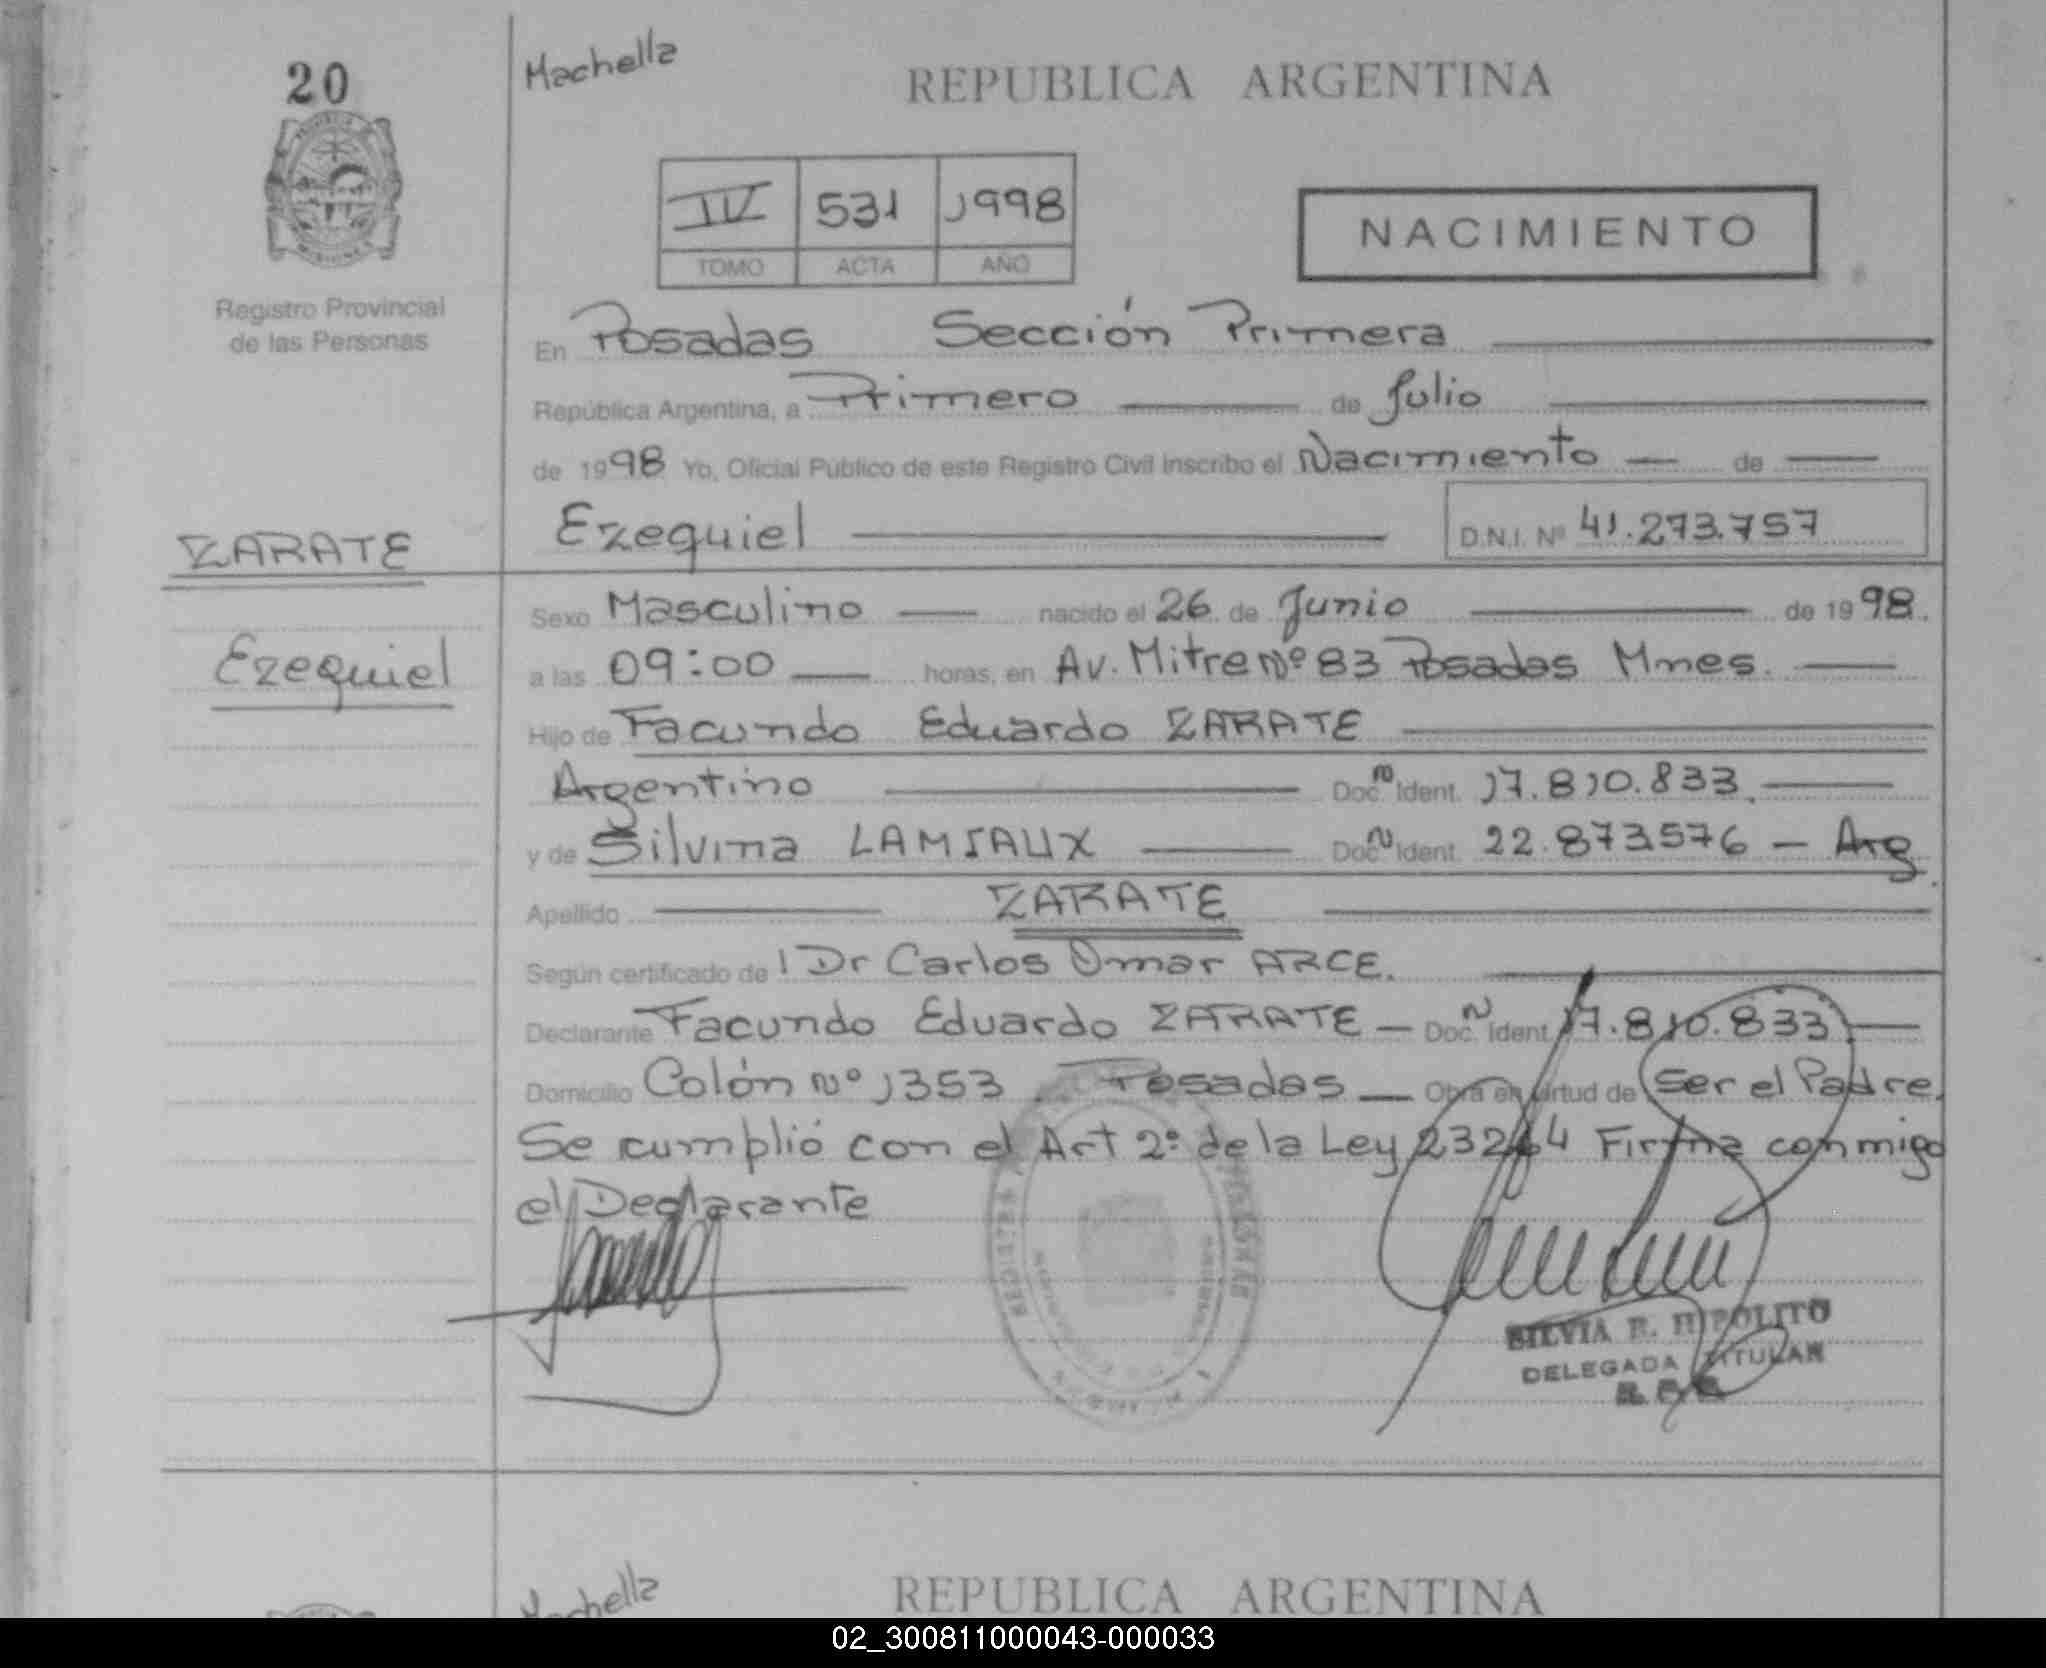 20
Machella
REPUBLICA ARGENTINA
IV 531 1998
TOMO ACTA AÑO
NACIMIENTO
Registro Provincial
de las Personas
En Posadas Sección Primera
República Argentina, a Primero de Julio
de 1998 Yo, Oficial Público de este Registro Civil inscribo el Nacimiento de
Ezequiel D.N.I. Nº 41.273.757
ZARATE
Ezequiel
Sexo Masculino nacido el 26 de Junio de 1998.
a las 09:00 horas, en Av. Mitre Nº 83 Posadas Mnes.
Hijo de Facundo Eduardo ZARATE
Argentino Doc. N Ident. 17.810.833.
y de Silvina LAMIAUX Doc. N Ident. 22.873.576 - Arg.
Apellido ZARATE
Según certificado de l Dr Carlos Omar ARCE.
Declarante Facundo Eduardo ZARATE - Doc. N Ident. 17.810.833
Domicilio Colón Nº 1353 Posadas Obra en virtud de Ser el Padre.
Se cumplió con el Art 2º de la Ley 23264 Firma conmigo
el Declarante
SILVIA R. HIPOLITO
DELEGADA TITULAR
Machella
REPUBLICA ARGENTINA
02_300811000043-000033